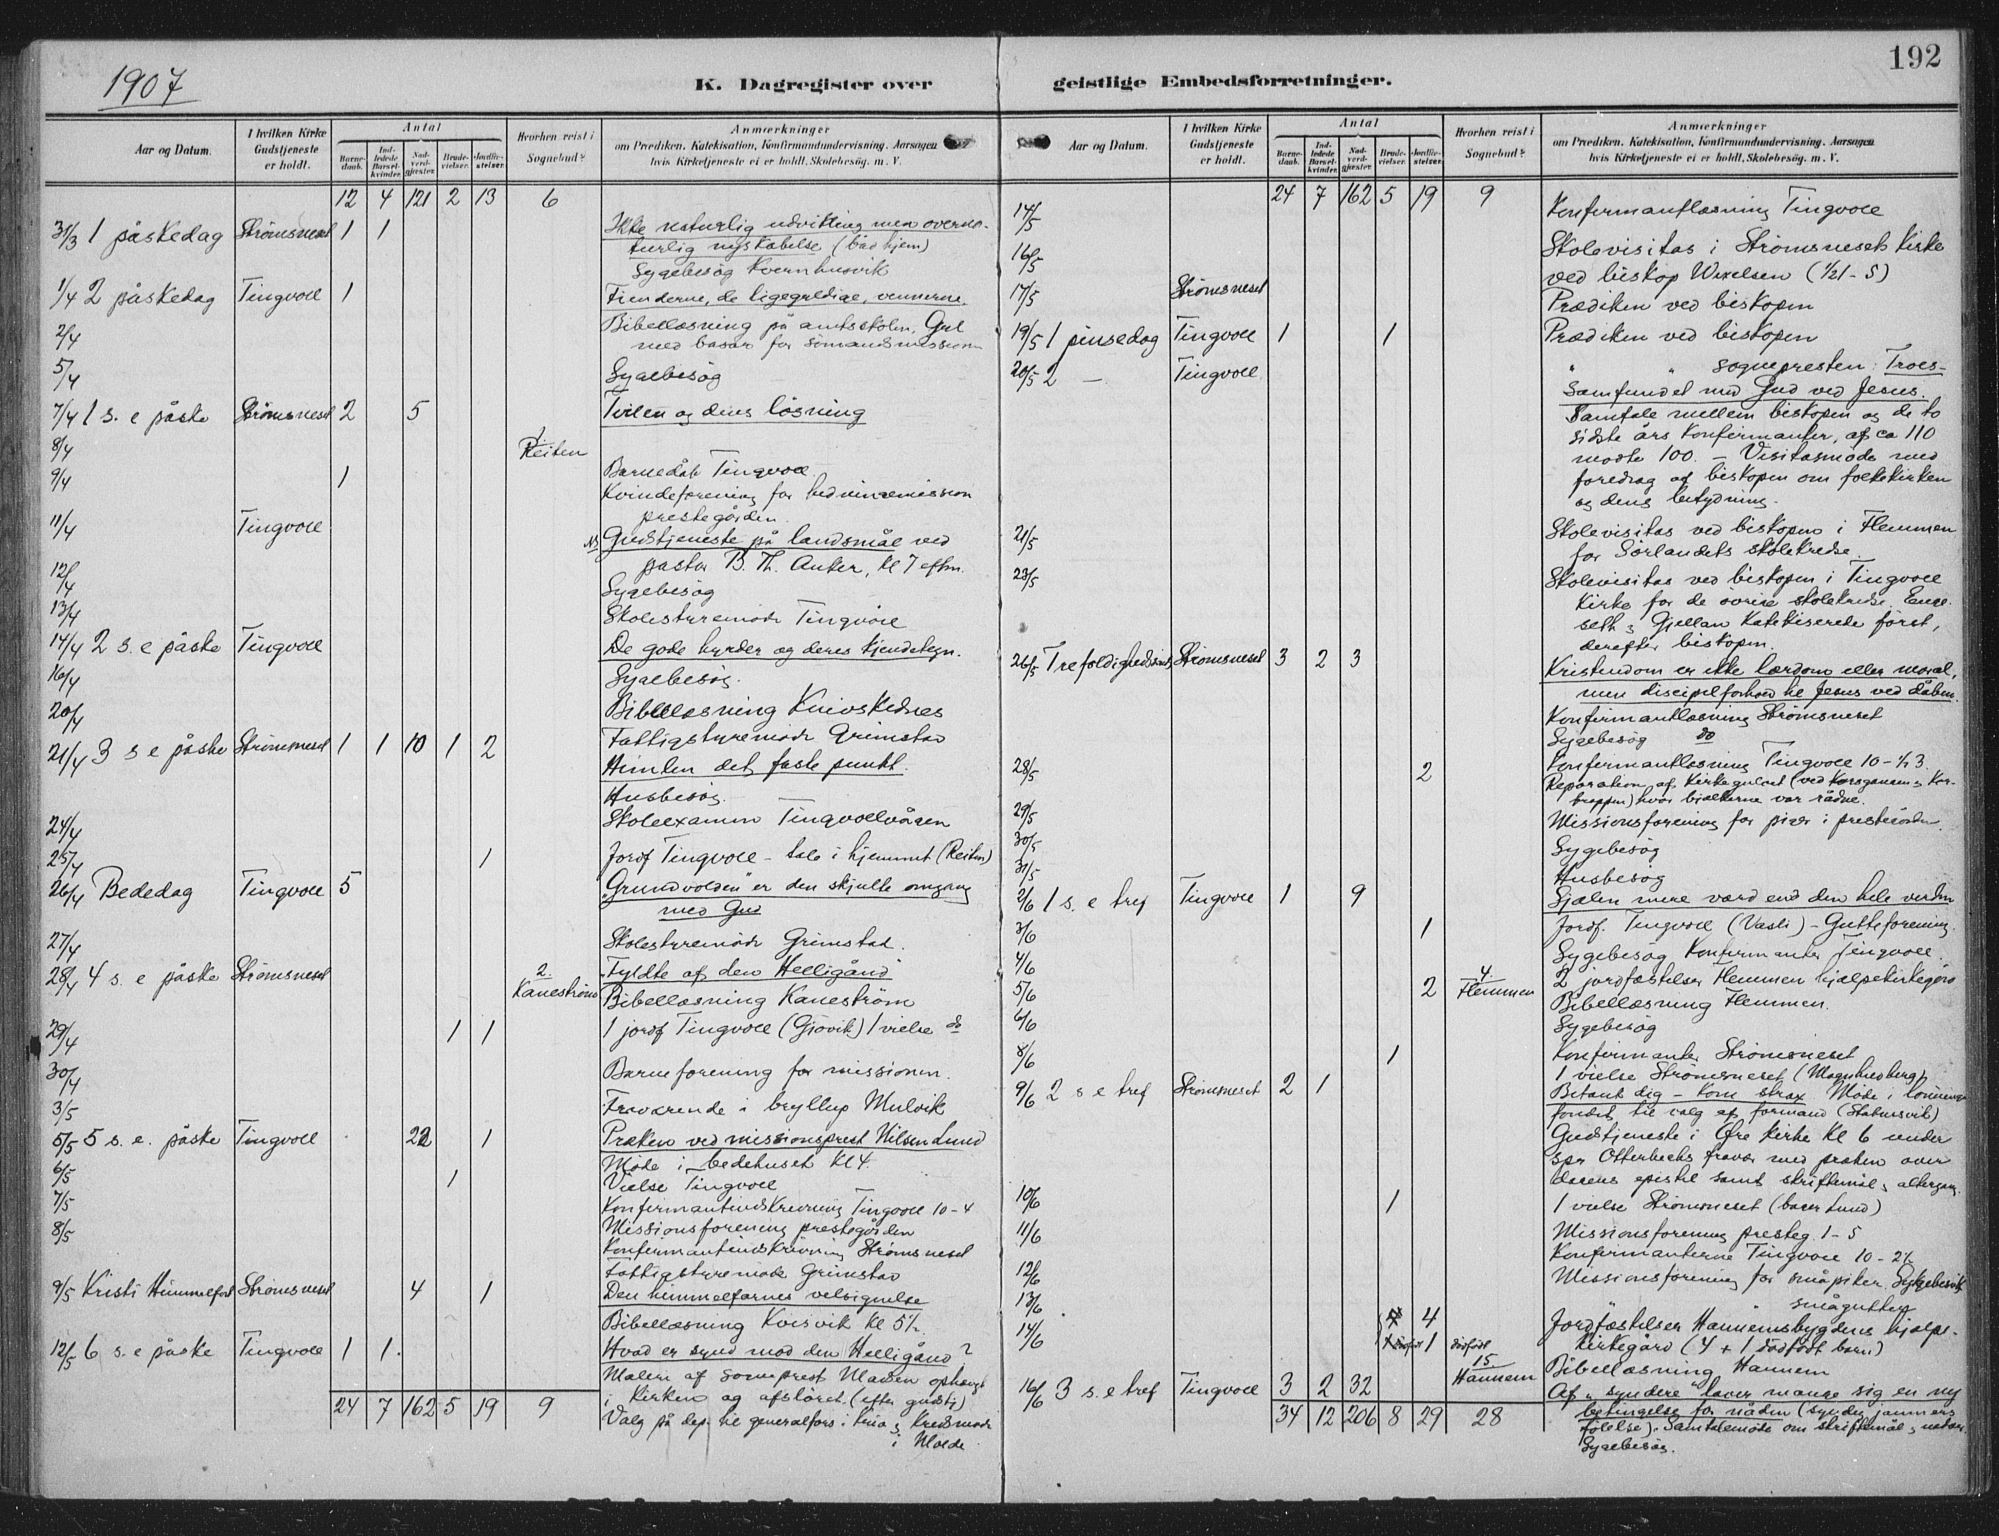 192
1907
K. Dagregister over geistlige Embedsforretninger.
Aar og Datum. I hvilken Kirke Gudstjeneste er holdt. Antal Barne-daab. Ind-ledede Barsel-kvinder. Nad-verd-gjæster. Brude-vielser. Jordfæ-stelser. Hvorhen reist i Sognebud? Anmærkninger om Prædiken, Katekisation, Konfirmandundervisning, Aarsagen hvis Kirketjeneste ei er holdt, Skolebesøg. m. V.
12 4 121 2 13 6
31/3 1 påskedag Strømsneset 1 1 Ikke naturlig udvikling men overna-
turlig nyskabelse (bad hjem)
Sygebesøg Kvernhusvik
1/4 2 påskedag Tingvoll 1 Fienderne, de ligegyldige, vennerne.
2/4 Bibellæsning på amtsskolen, Gul
med basar for sømandsmission
5/4 Sygebesøg
7/4 1 s. e påske Strømsneset 2 5 Tvilen og dens løsning
8/4 1 Reiten
9/4 1 Barnedåb Tingvoll
Kvindeforening for hedningemission
prestegården.
11/4 Tingvoll NB Gudstjeneste på landsmål ved
pastor B. Th. Anker, kl 7 eftm.
12/4 Sygebesøg
13/4 Skolestyremøde Tingvoll
14/4 2 s. e påske Tingvoll De gode hyrder og deres kjendetegn.
16/4 Sygebesøg.
20/4 Bibellæsning
Fattigstyremøde Grimstad
21/4 3 s e påske Strømsneset 1 1 10 1 2 Himlen det faste punkt.
Husbesøg.
24/4 Skoleexamen Tingvollvågen
25/4 1 Jordf Tingvoll - tale i hjemmet (Reiten)
26/4 Bededag Tingvoll 5 "Grundvolden" er den skjulte omgang
med Gud
27/4 Skolestyremøde Grimstad.
28/4 4 s. e påske Strømsneset 2. Kanestrøm "Fyldte af den Helligånd"
Bibellæsning Kanestrøm
29/4 1 1 1 jordf Tingvoll (Gjøvik) 1 vielse do
30/4 Barneforening for missionen.
3/5 Fraværende i bryllup Mulvik
5/5 5 s. e. påske Tingvoll 22 1 Præken ved missionsprest Nilsen Lund
Møde i bedehuset kl 4.
6/5 1 Vielse Tingvoll
7/5 Konfirmantindskrivning Tingvoll 10-4
Missionsforening prestegården
8/5 Konfirmantindskrivning Strømsneset
Fattigstyremøde Grimstad
9/5 Kristi Himmelfart Strømsneset 4 1 Den himmelfarnes velsignelse
Bibellæsning Kvisvik kl 5½.
12/5 6 s. e påske Tingvoll 1 1. Hvad er synd mod den Helligånd?
Maleri af sogneprest Madsen ophængt
i kirken og afsløret. (efter gudstj)
24 7 162 5 19 9 Valg på dep. til generalfors i
i Molde
Aar og Datum. I hvilken Kirke Gudstjeneste er holdt. Antal Barne-daab. Ind-ledede Barsel-kvinder. Nad-verd-gjæster. Brude-vielser. Jordfæ-stelser. Hvorhen reist i Sognebud? Anmærkninger om Prædiken, Katekisation, Konfirmandundervisning, Aarsagen hvis Kirketjeneste ei er holdt, Skolebesøg. m. V.
24 7 162 5 19 9
14/5 Konfirmantlæsning Tingvoll
16/5 Skolevisitas i Strømsneset Kirke
ved biskop Wexelsen (½1-5)
17/5 Strømsneset Prædiken ved biskopen
19/5 1 pinsedag Tingvoll 1 1 Prædiken ved biskopen
20/5 2 - Tingvoll " " sognepresten: Troes-
samfundet med Gud ved Jesus.
Samtale mellem biskopen og de to
sidste års konfirmanter, af ca 110
mødte 100. - Visitasmøde med
foredrag af biskopen om folkekirken
og dens betydning.
21/5 Skolevisitas ved biskopen i Flemmen
for Sørlandets skolekredse.
23/5 Skolevisitas ved biskopen i Tingvoll
kirke for de øvrige skolekredse. Enge-
seth & Gjellan katekiserede først,
derefter biskopen.
26/5 Trefoldighedssønd Strømsneset 3 2 3 Kristendom er ikke lærdom eller moral,
men discipelforhold til Jesus ved dåben
Konfirmantlæsning Strømsneset
Sygebesøg do
28/5 2 Konfirmantlæsning Tingvoll 10-½3.
Reparation af kirkegulvet (ved & Kor-
trappen) hvor bjælkerne var rådne.
29/5 Missionsforening for piger i prestegården
30/5 Sygebesøg
31/5 Husbesøg
2/6 1 s. e tref Tingvoll 1 9 Sjælen mere værd end den hele verden
3/6 1 Jordf. Tingvoll (Vasli) - Gutteforening.
4/6 Sygebesøg Konfirmanter Tingvoll.
5/6 2 4. Flemmen 2 jordfæstelser Flemmen hjælpekirkegård
Bibellæsning Flemmen.
6/6 Sygebesøg
8/6 1 Konfirmanter Strømsneset
1 vielse Strømsneset (Magnhildberg)
9/6 2 s e tref Strømsneset 2 1 Betænk dig - kom strax Møde i lønnings-
fondet til valg af formand (Stabursvik)
Gudstjeneste i Øre kirke kl 6 under
spr Otterbechs fravær med præken over
dagens epistel samt skriftemål & altergang.
10/6 1 1 vielse Strømsneset (bager Lund)
11/6 Missionsforening presteg 1-5
Konfirmanterne Tingvoll 10-2½
12/6 Missionsforening for småpiker. Sygebesøk
13/6 " " smågutter
14/6 4 Jordfæstelser Hannemsbygdens hjælpe-
1 dødfødt kirkegård (4 + 1 dødfødt barn)
15. Hannem Bibellæsning Hannem
16/6 3 s. e tref Tingvoll 3 2 32 Af "syndere" laver mange sig en ny
34 12 206 8 29 28 betingelse for nåden (syndig jammers
følelse). Samtalemøde om skriftemål &
Sygebesøg.